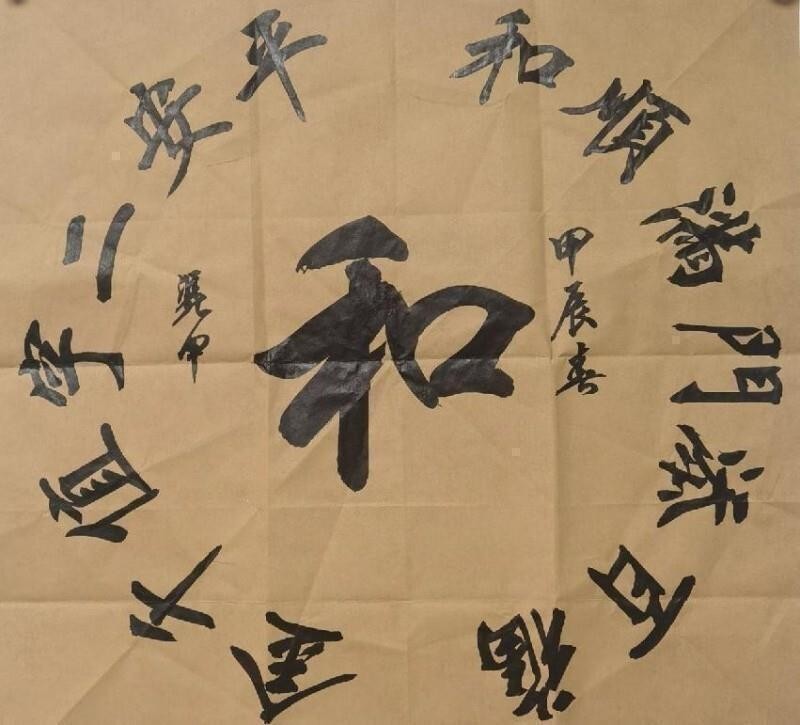 和
和順滿門添百福
平安二字值千金
甲辰春